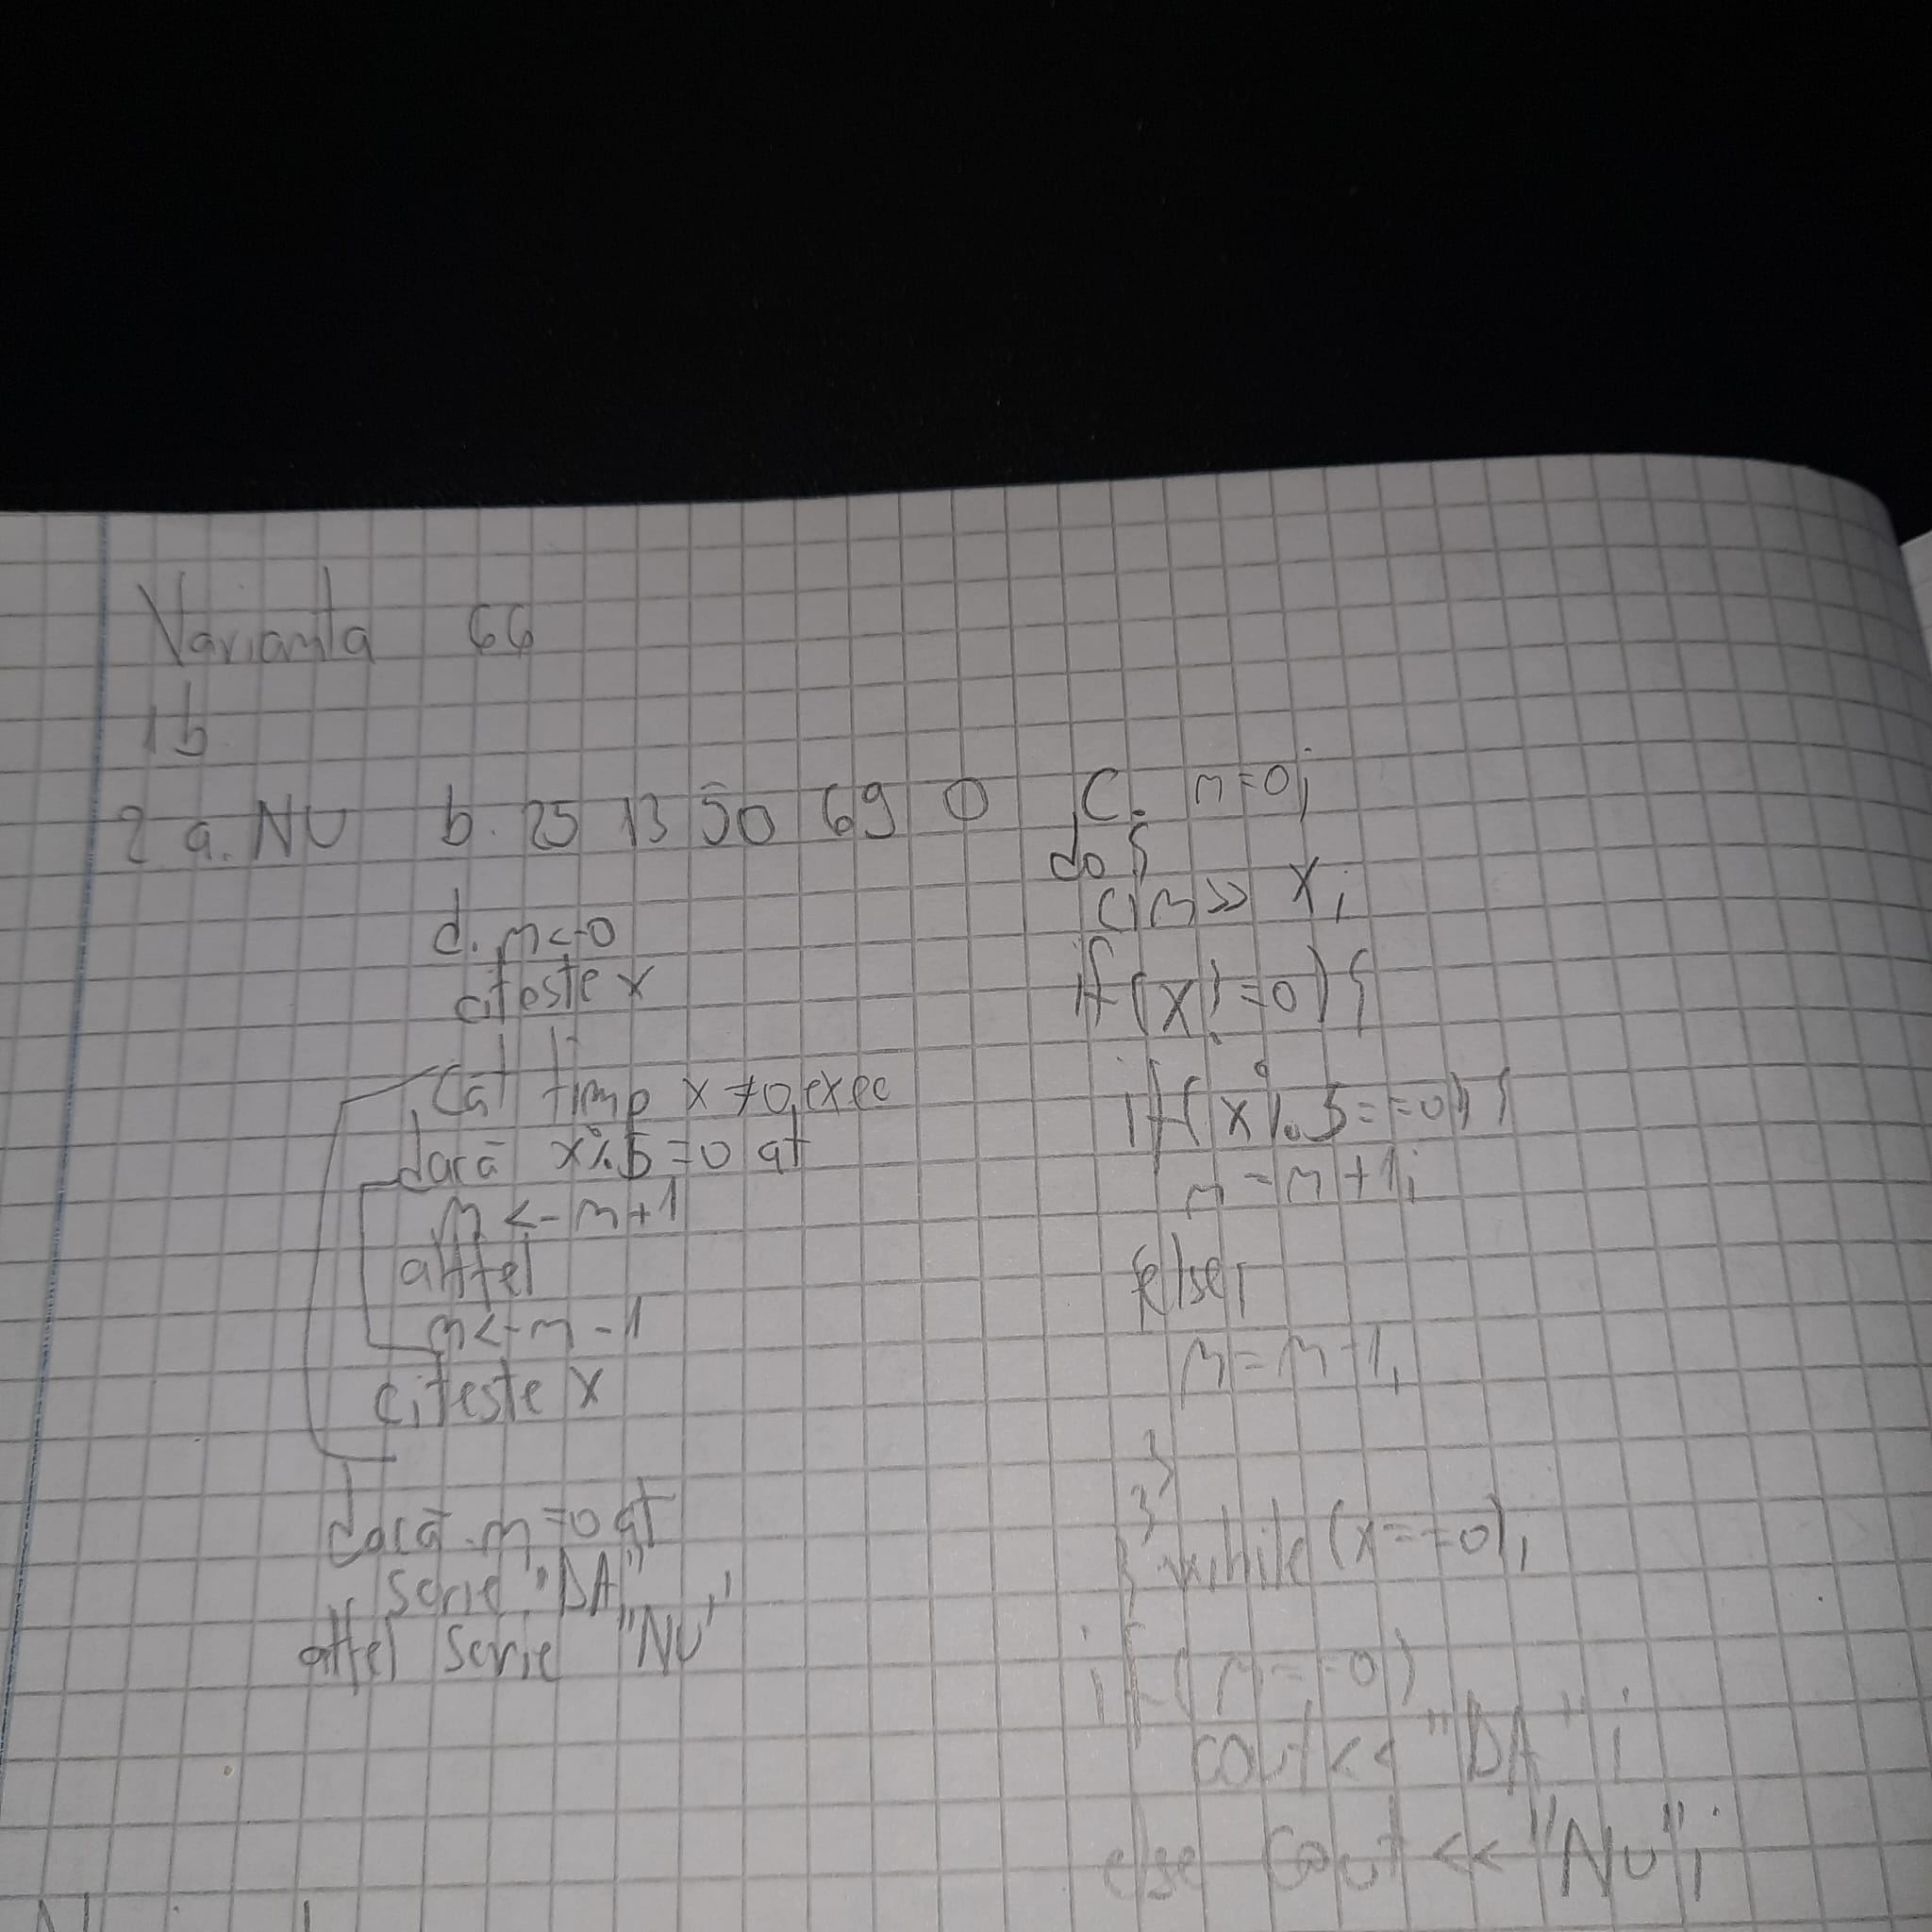 Varianta 66
1b
2 a. NU b. 25 13 50 69 0
d. n<-0
citeste x
Cat timp x≠0,exec
dacă x%5=0 at
n<-n+1
altfel
n<-n-1
citeste x
dacă n=0 at
scrie "DA"
altfel scrie "NU"
C. n=0;
do{
cin>> x;
if(x!=0){
if(x%5==0){
n=n+1;
else
n=n-1;
}
}
}while(x==0);
if(n==0)
cout<< "DA";
else cout<< "NU";